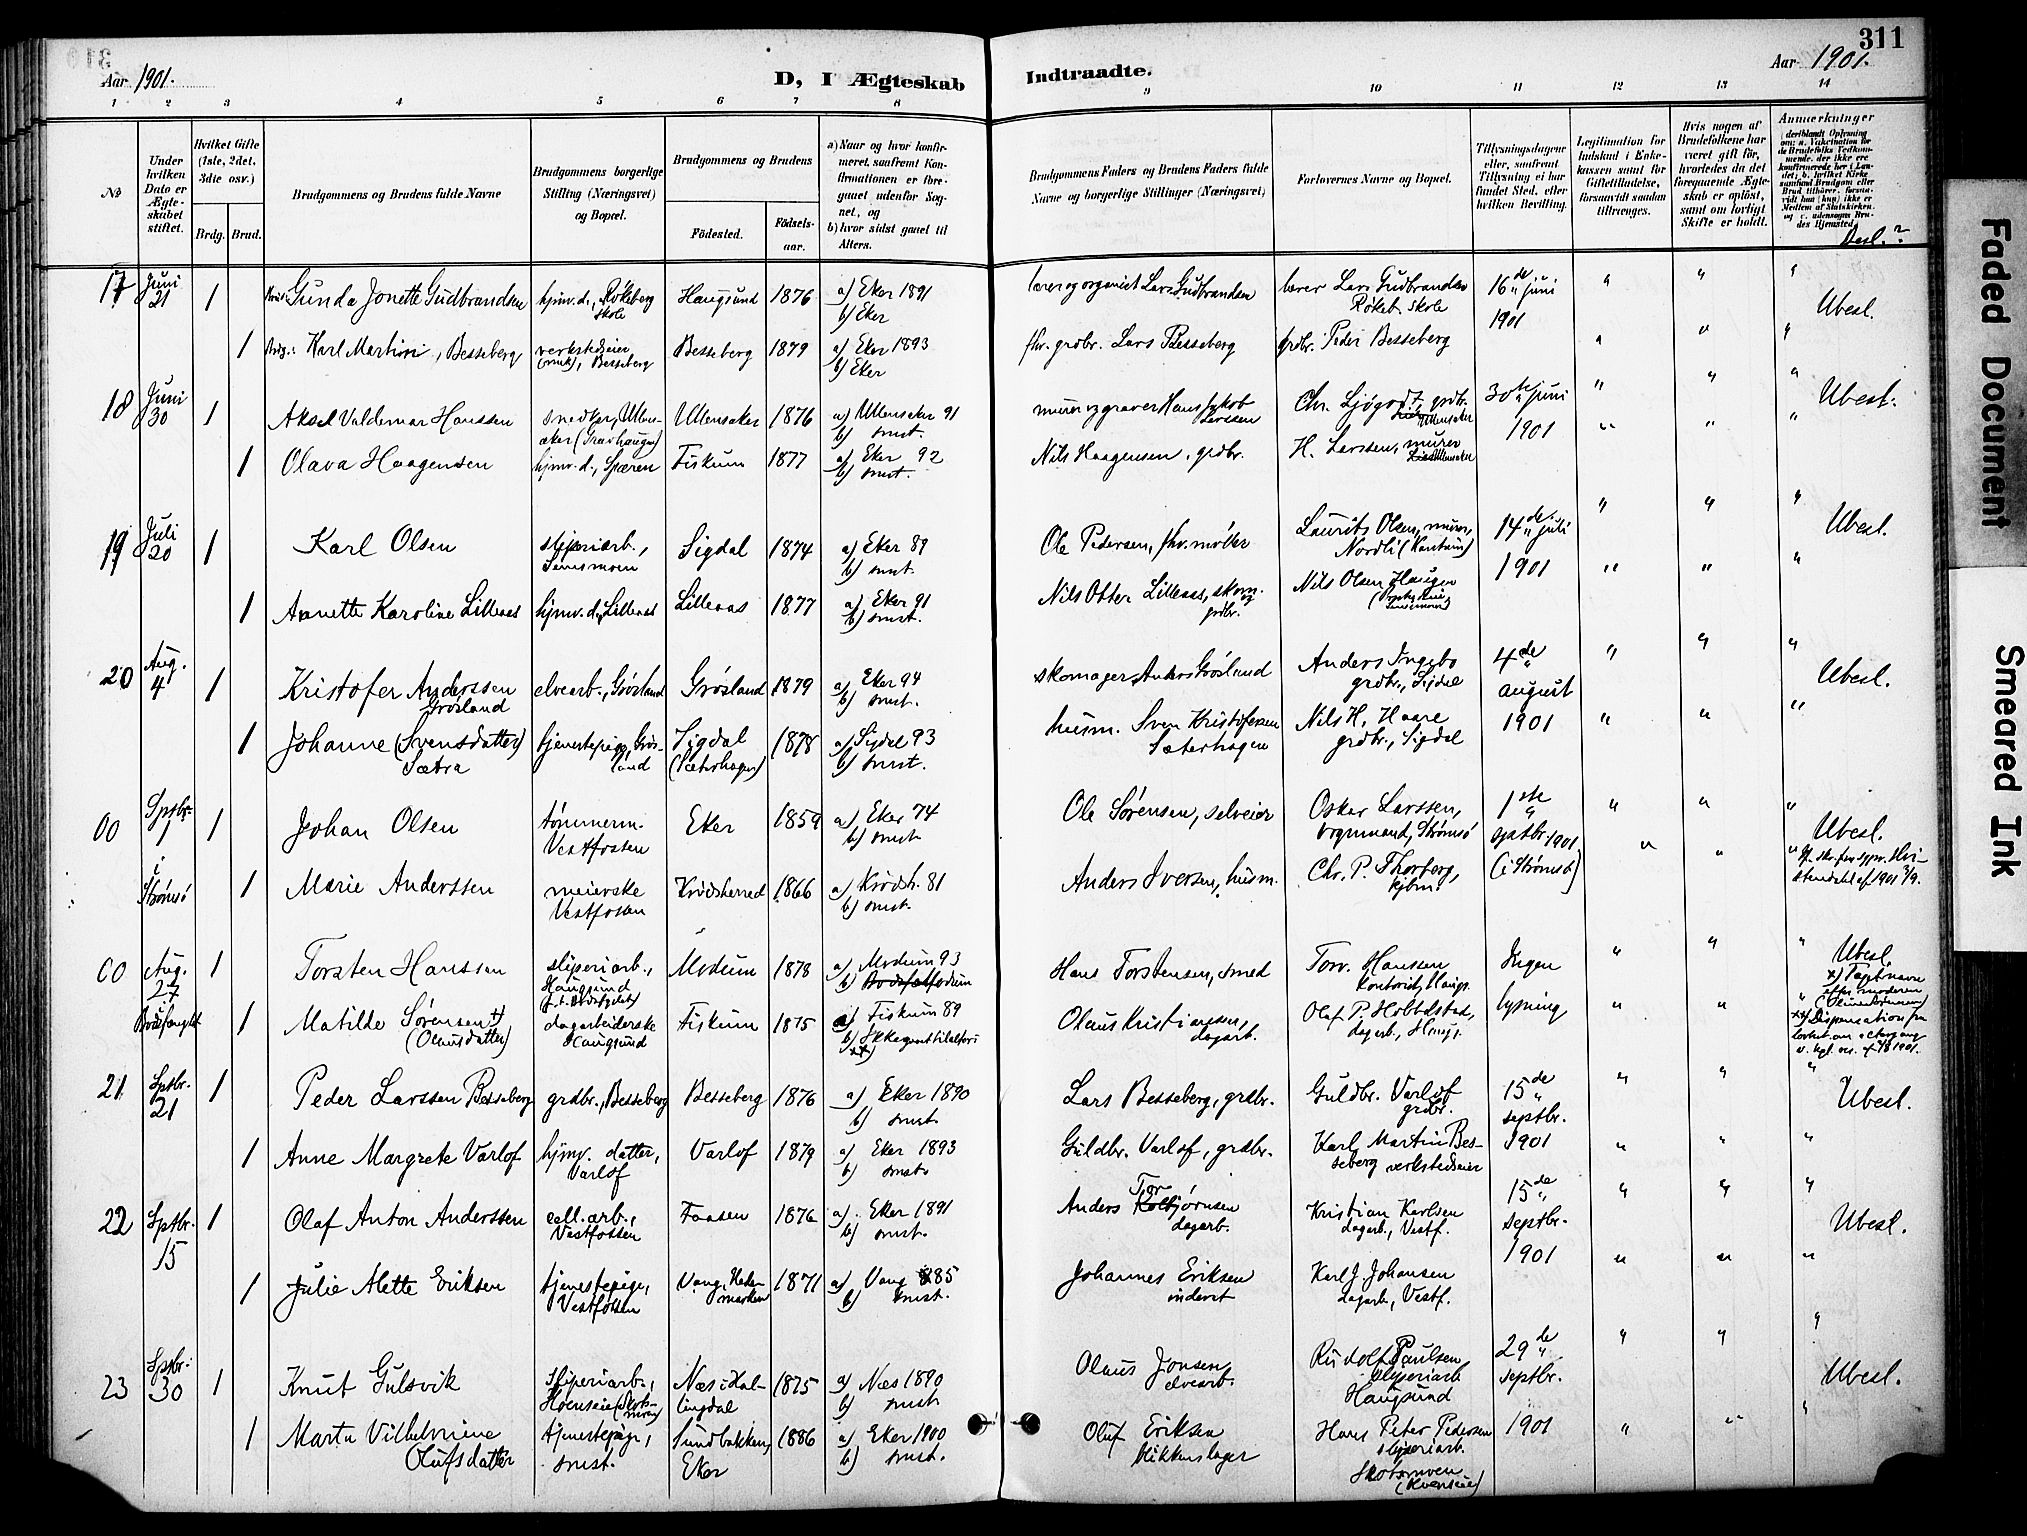 311
Aar 1901.
D, I Ægteskab
Indtraadte.
Aar 1901.
1 2 3 4 5 6 7 8 9 10 11 12 13 14
No
Under hvilken Dato er Ægteskabet stiftet.
Hvilket Gifte (1ste, 2det, 3die osv.)
Brdg. Brud.
Brudgommens og Brudens fulde Navne
Brudgommens borgerlige Stilling (Næringsvei) og Bopæl.
Brudgommens og Brudens
Födested. Födselsaar.
a) Naar og hvor konfirmeret, samfremt Konfirmationen er foregaaet udenfor Sognet, og
b) hvor sidst gaaet til Alters.
Brudgommens Faders og Brudens Faders fulde Navne og borgerlige Stillinger (Næringsvei)
Forlovernes Navne og Bopæl.
Tillysningsdagene eller, saafremt Tillysning ei har fundet Sted, efter hvilken Bevilling.
Legitimation for Indskud i Enkekassen samt for Giftetilladelse, forsaavidt saadan tiltrænges.
Hvis nogen af Brudefolkene har været gift för, hvorledes da det foregaaende Ægteskab er oplöst, samt om lovligt Skifte er holdt.
Anmerkninger
Besl.?
17 Juni 21 1 Gunda Jonette Gudbrandsen hjmv. d., Røkeberg skole Haugsund 1876 a) Eker 1891 b) Eker lærer og organist Lars Gudbrandsen lærer Lars Gudbrandsen Røkeb. skole 16de juni 1901 Ubesl.
1 Brdg.: Karl Martin, Besseberg verkstedseier Besseberg Besseberg 1879 a) Eker 1893 b) Eker fhv. grdbr. Lars Besseberg grdbr. Peder Besseberg
18 Juni 30 1 Aksel Valdemar Hanssen snedker, Ullensaker Ullensaker 1876 a) Ullensaker 91 b) smst. murer og graver Hans Jakob Larssen Chr. Ljøgodt, grdbr. Ullensaker 30te juni 1901 Ubesl.
1 Olava Haagensen hjmv. d., Spæren Fiskum 1877 a) Eker 92 b) smst. Nils Haagensen, grdbr. H. Larssen, murer Ullensaker
19 Juli 20 1 Karl Olsen sliperiarb., Semsmoen Sigdal 1874 a) Eker 89 b) smst. Ole Pedersen, fhv. møller Laurits Olsen, murer, Nordli 14de juli 1901 Ubesl.
1 Annette Karoline Lilleaas hjmv. d., Lilleaas Lilleaas 1877 a) Eker 91 b) smst. Nils Otter Lilleaas, skom. og grdbr. Nils Olsen Haugen
20 Aug. 4 1 Kristofer Anderssen Grøsland elvearb., Grøsland Grøsland 1879 a) Eker 94 b) smst. skomager Anders Grøsland Anders Ingebo grdbr., Sigdal 4de august 1901 Ubesl.
1 Johanne (Svensdatter) Sætra tjenestepige, Grøsland Sigdal (Sæterhagen) 1878 a) Sigdal 93 b) smst. husm. Sven Kristofersen Sæterhagen Nils H. Haare grdbr., Sigdal
00 Sptbr. 1 i Strømsø 1 Johan Olsen tømmerm. Vestfossen Eker 1859 a) Eker 74 b) smst. Ole Sørensen, selveier Oskar Larssen, vognmand, Strømsø 1ste sptbr. 1901 (i Strømsø) Ubesl.
1 Marie Anderssen meierske Vestfossen Krødsherred 1866 a) Krødsh. 81 b) smst. Anders Iversen, husm. Chr. P. Thorberg, kjbm.
00 Aug. 27 Bodsfængslet 1 Torsten Hanssen sliperiarb., Haugsund Modum 1878 a) Modum 93 b) Modum Hans Torstensen, smed Torv. Hanssen kontorist, Haugs. Ingen lysning Ubesl.
x) Tapt navn efter moderen
xx) Dispensation fra
1 Matilde Sørensen x) (Olausdatter) dagarbeiderske Haugsund Fiskum 1875 a) Fiskum 89 b) Ikke gaat til alters xx) Olaus Kristiansen, dagarb. Olaf P. Hobbelstad, dagarb., Haugs.
21 Sptbr. 21 1 Peder Larssen Besseberg grdbr., Besseberg Besseberg 1876 a) Eker 1890 b) smst. Lars Besseberg, grdbr. Guldbr. Varlof grdbr. 15de septbr. 1901 Ubesl.
1 Anne Margrete Varlof hjmv. datter, Varlof Varlof 1879 a) Eker 1893 b) smst. Guldbr. Varlof, grdbr. Karl Martin Besseberg verkstedseier
22 Sptbr. 15 1 Olaf Anton Anderssen cell. arb., Vestfossen Faasen 1876 a) Eker 1891 b) smst. Anders Torbjørnsen dagarb. Kristian Karlsen dagarb., Vestf. 15de septbr. 1901 Ubesl.
1 Julie Alette Eriksen tjenestepige, Vestfossen Vang, Hedemarken 1871 a) Vang 85 b) smst. Johannes Eriksen inderst Karl J. Johansen dagarb., Vestf.
23 Sptbr. 30 1 Knut Gulsvik sliperiarb., Næs i Hallingdal 1875 a) Næs 1890 b) smst. Olaus Jonsen, elvearb. Rudolf Paulsen, sliperiarb. Haugsund 29de septbr. 1901 Ubesl.
1 Marta Vilhelmine Olufsdatter tjenestepige, smst. Sundbakken, Eker 1886 a) Eker 1900 b) smst. Oluf Eriksen blikkenslager Hans Peter Pedersen sliperiarb. Skotsmoen
Faded Document
Smeared Ink